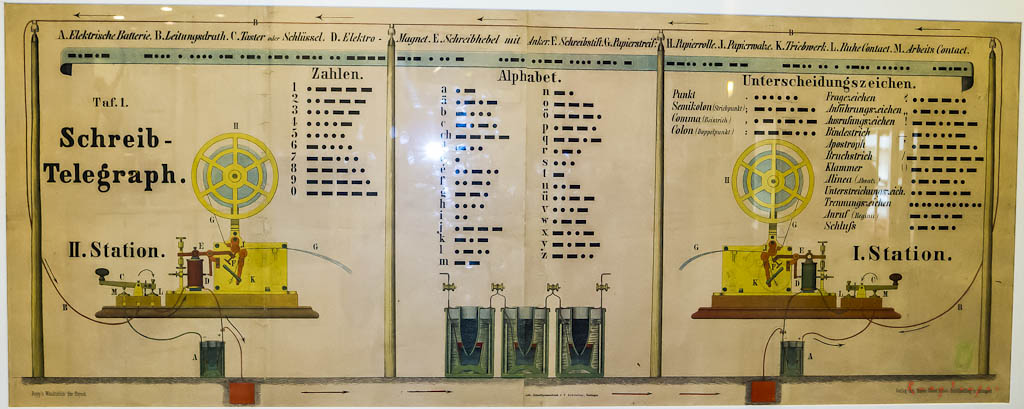 A. Elektrische Batterie. B. Leitungsdrath. C. Taster oder Schlüssel. D. Elektro-Magnet. E. Schreibhebel mit Anker. F. Schreibstift. G. Papierstreif. H. Papierrolle. J. Papierwalze. K. Triebwerk. L. Ruhe Contact. M. Arbeits Contact.
Taf. 1.
Schreib-
Telegraph.
II. Station.
Zahlen.
1
2
3
4
5
6
7
8
9
0
Alphabet.
a
ä
b
c
ch
d
e
f
g
h
i
j
k
l
m
n
o
ö
p
q
r
s
t
u
ü
v
w
x
y
z
Unterscheidungszeichen.
Punkt
Semikolon (Strichpunkt) ;
Comma (Beistrich) ,
Colon (Doppelpunkt) :
Fragezeichen ?
Anführungszeichen
Ausrufungszeichen !
Bindestrich
Apostroph
Bruchstrich
Klammer ()
Alinea
Unterstreichungszeich.
Trennungszeichen
Anruf (Beginn)
Schluß
I. Station.
B
B
B
H
G
E
F
D
K
G
C
L
M
B
A
H
G
G
E
F
D
K
C
L
M
B
A